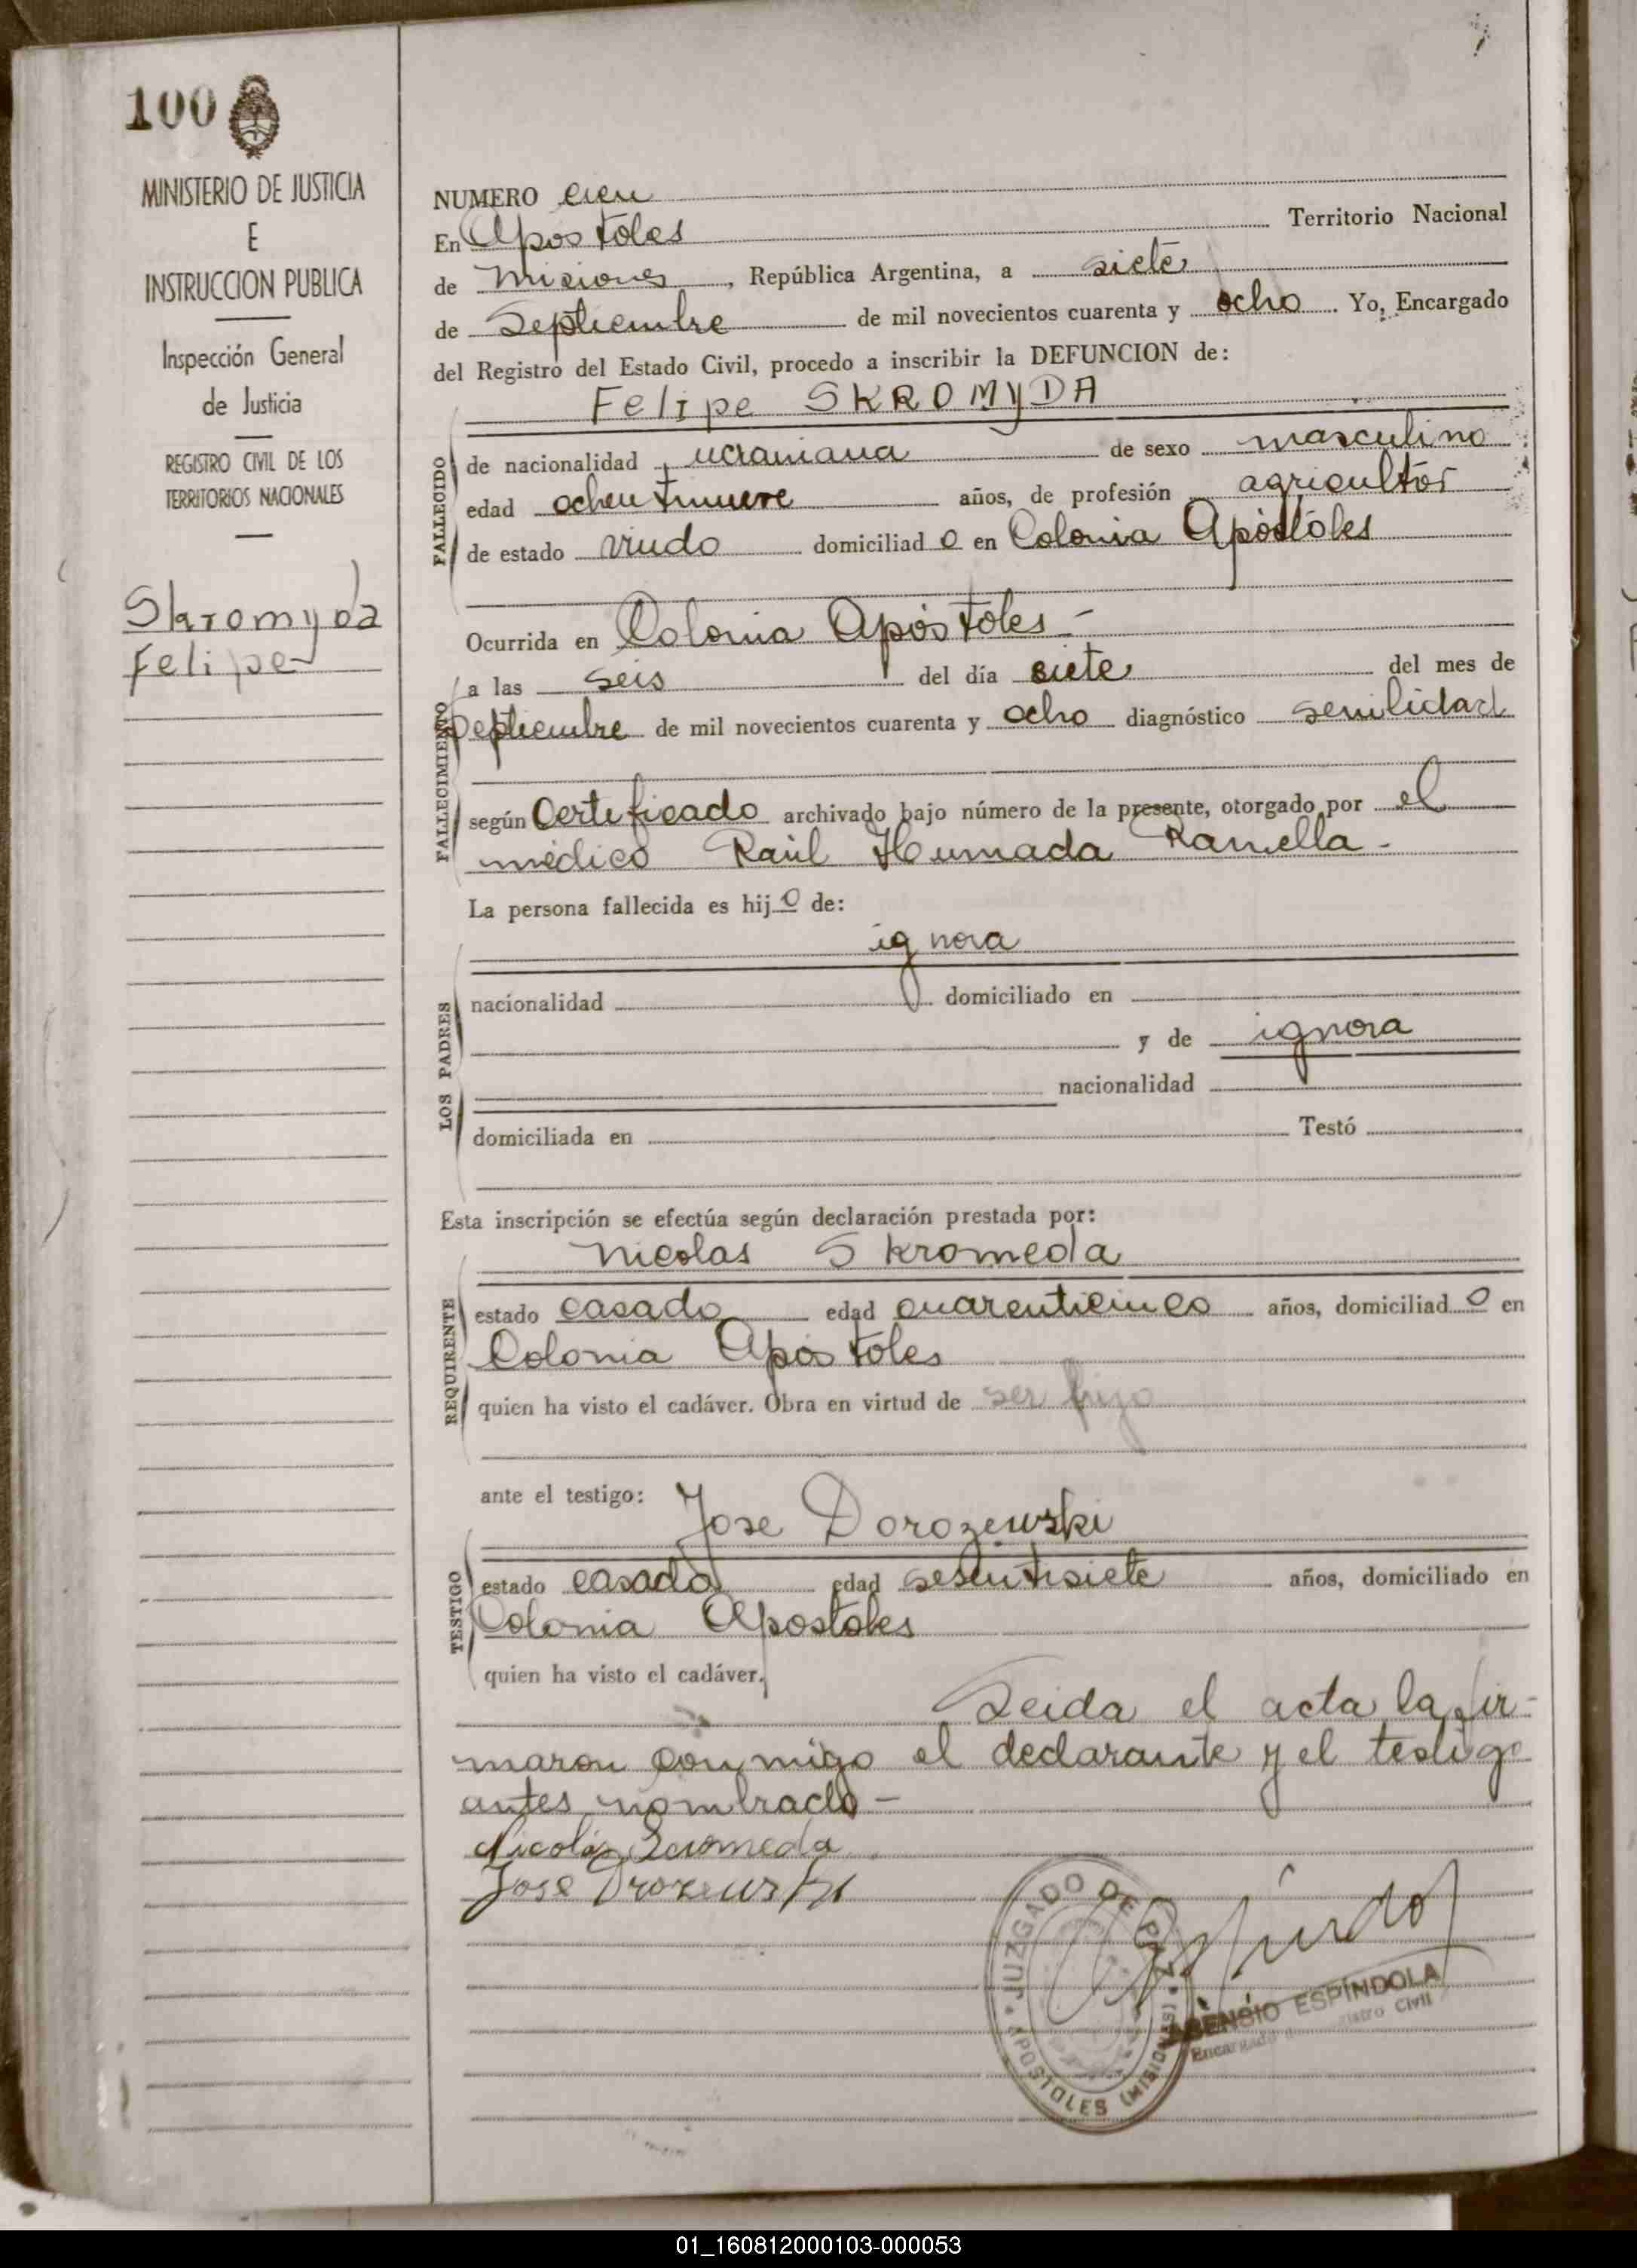 100
MINISTERIO DE JUSTICIA
E
INSTRUCCION PUBLICA
Inspección General
de Justicia
REGISTRO CIVIL DE LOS
TERRITORIOS NACIONALES
Skromyda
Felipe
NUMERO cien
En Apostoles Territorio Nacional
de Misiones, República Argentina, a siete
de Septiembre de mil novecientos cuarenta y ocho. Yo, Encargado
del Registro del Estado Civil, procedo a inscribir la DEFUNCION de:
Felipe SKROMYDA
FALLECIDO
de nacionalidad ucraniana de sexo masculino
edad ochentinueve años, de profesión agricultor
de estado viudo domiciliado en Colonia Apóstoles
Ocurrida en Colonia Apóstoles -
FALLECIMIENTO
a las seis del día siete del mes de
Septiembre de mil novecientos cuarenta y ocho diagnóstico senilidad
según Certificado archivado bajo número de la presente, otorgado por el
médico Raúl Humada Ramella -
La persona fallecida es hijo de:
ignora
LOS PADRES
nacionalidad domiciliado en
y de ignora
nacionalidad
domiciliada en Testó
Esta inscripción se efectúa según declaración prestada por:
Nicolas Skromeda
REQUIRENTE
estado casado edad cuarenticinco años, domiciliado en
Colonia Apóstoles
quien ha visto el cadáver. Obra en virtud de ser hijo
ante el testigo: Jose Dorozewski
TESTIGO
estado casado edad sesentisiete años, domiciliado en
Colonia Apostoles
quien ha visto el cadáver.
Leida el acta la fir-
maron conmigo el declarante y el testigo
antes nombrado -
Nicolás Scromeda
Jose Drozewski
JUZGADO DE PAZ
APOSTOLES (MISIONES)
ASENSIO ESPÍNDOLA
Encargado Registro Civil
01_160812000103-000053